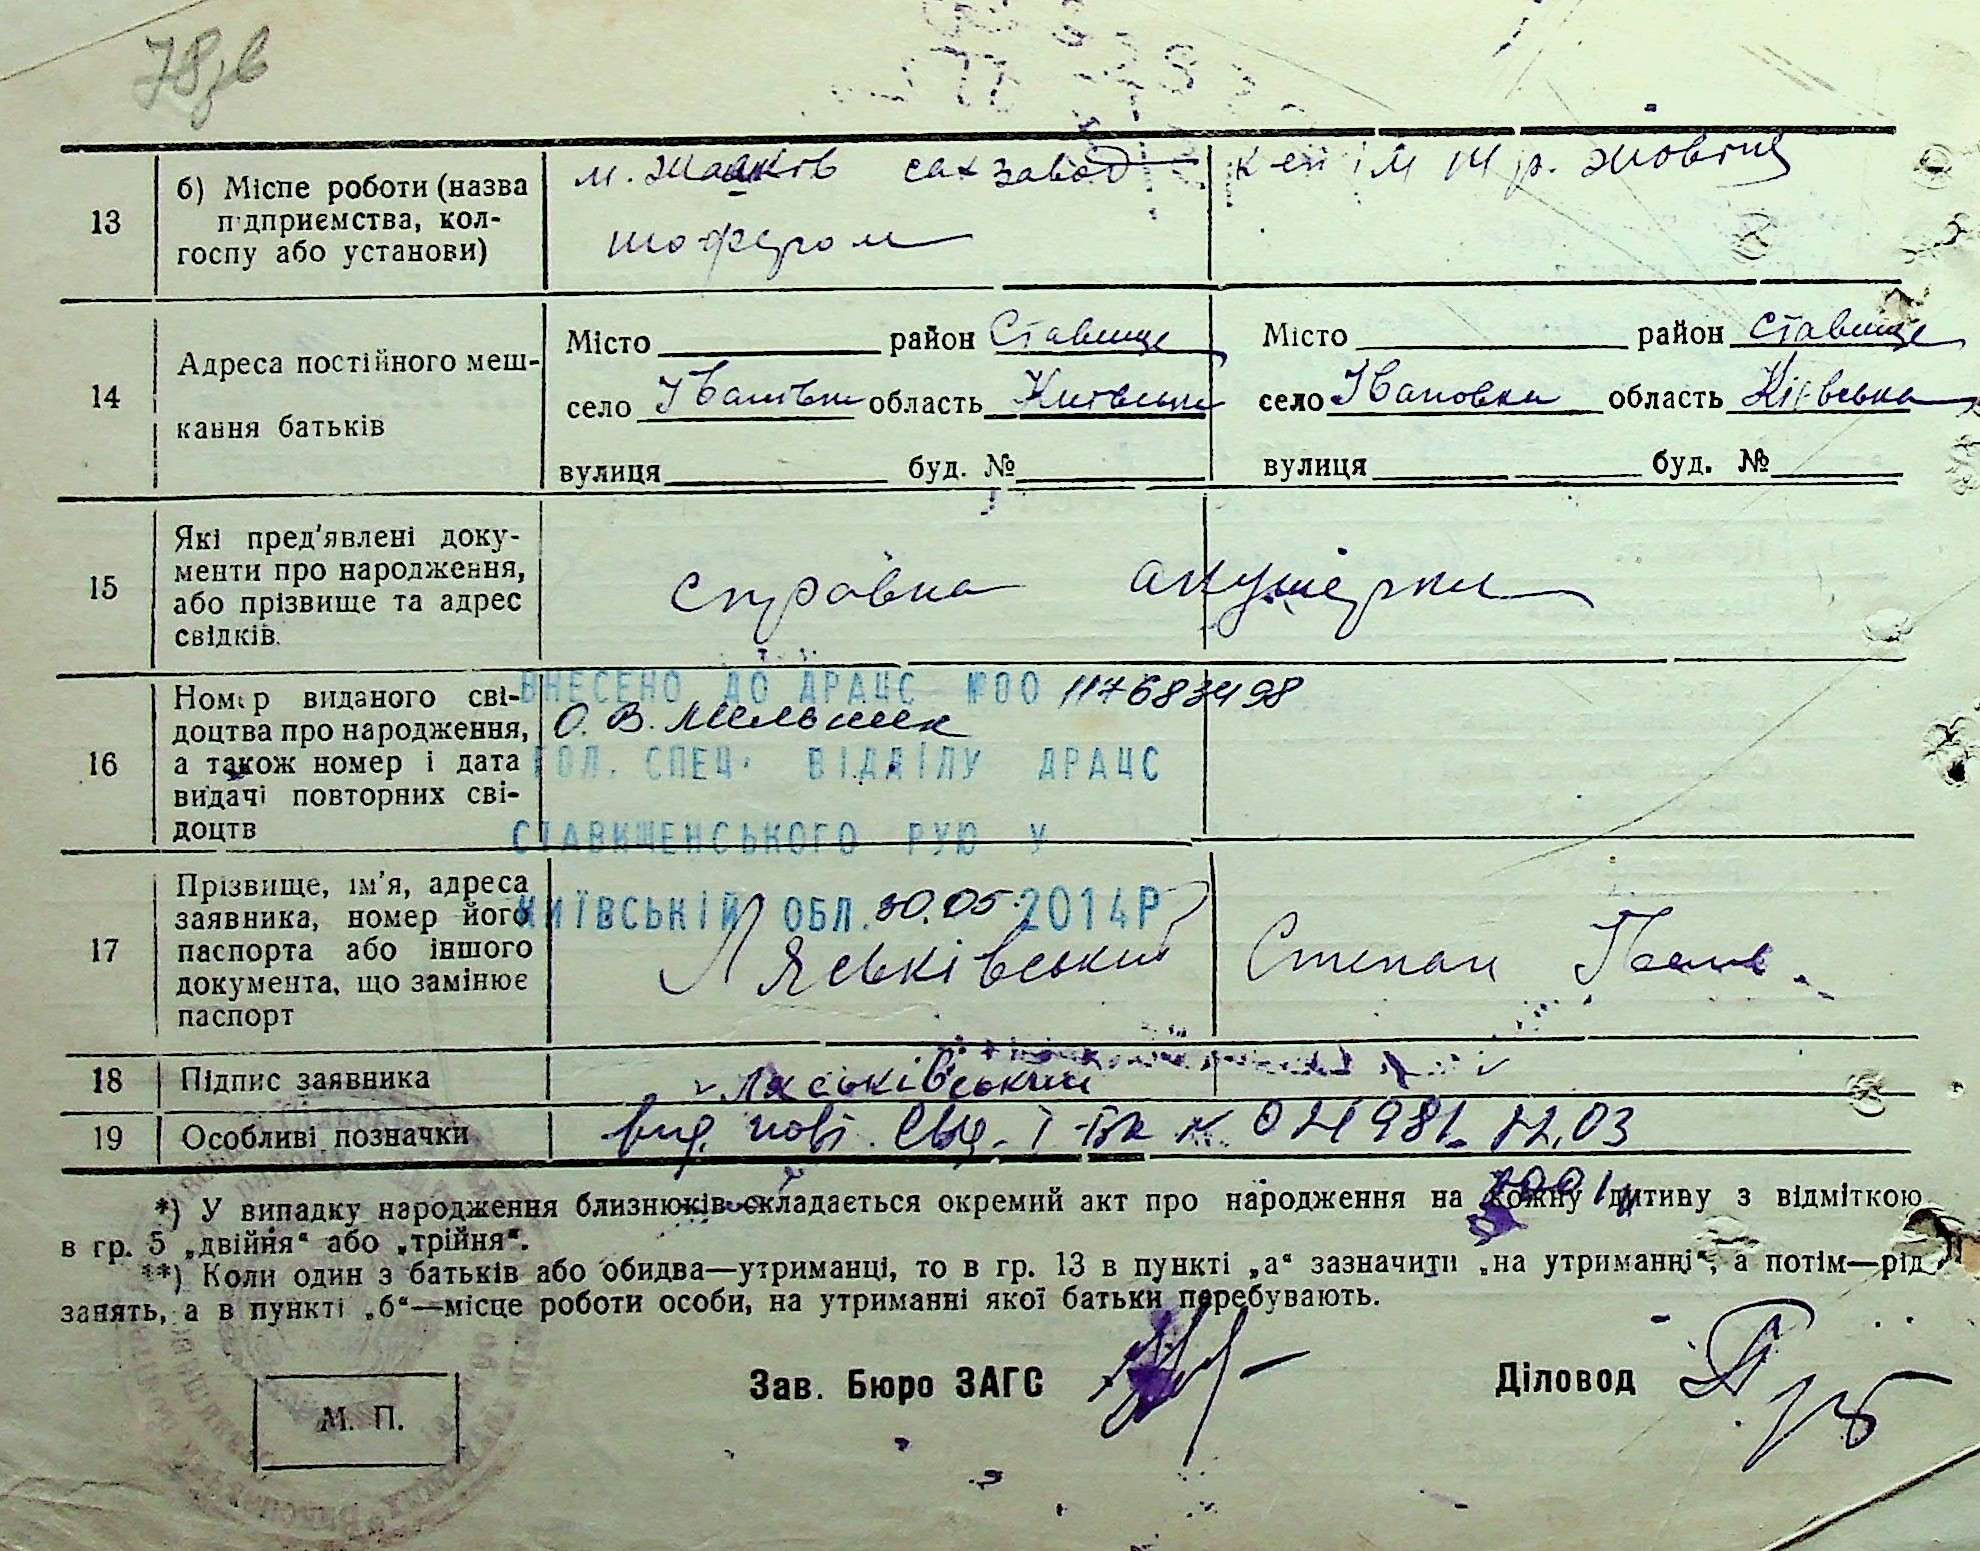 78зв
13 б) Місце роботи (назва підприємства, колгоспу або установи) м. Жашків сахзавод шофером к-сп ім Жовтня
14 Адреса постійного мешкання батьків
Місто район Ставище Місто район Ставище
село Іванівка область Київська село Івановка область Київська
вулиця буд. № вулиця буд. №
15 Які пред'явлені документи про народження, або прізвище та адрес свідків. справка акушерки
16 Номер виданого свідоцтва про народження, а також номер і дата видачі повторних свідоцтв
ВНЕСЕНО ДО ДРАЦС №00 117683498
О. В. Мельник
ГОЛ. СПЕЦ. ВІДДІЛУ ДРАЦС
СТАВИЩЕНСЬКОГО РУЮ У
КИЇВСЬКІЙ ОБЛ. 30.05. 2014Р
17 Прізвище, ім'я, адреса заявника, номер його паспорта або іншого документа, що замінює паспорт Ляськівський Степан Іван.
18 Підпис заявника Ляськівський
19 Особливі позначки вид. повт. свід. І-БК № 024981
*) У випадку народження близнюків складається окремий акт про народження на кожну дитину з відміткою
в гр. 5 „двійня“ або „трійня“.
**) Коли один з батьків або обидва—утриманці, то в гр. 13 в пункті „а“ зазначити „на утриманні“, а потім—рід
занять, а в пункті „б“—місце роботи особи, на утриманні якої батьки перебувають.
Зав. Бюро ЗАГС Діловод
М. П.